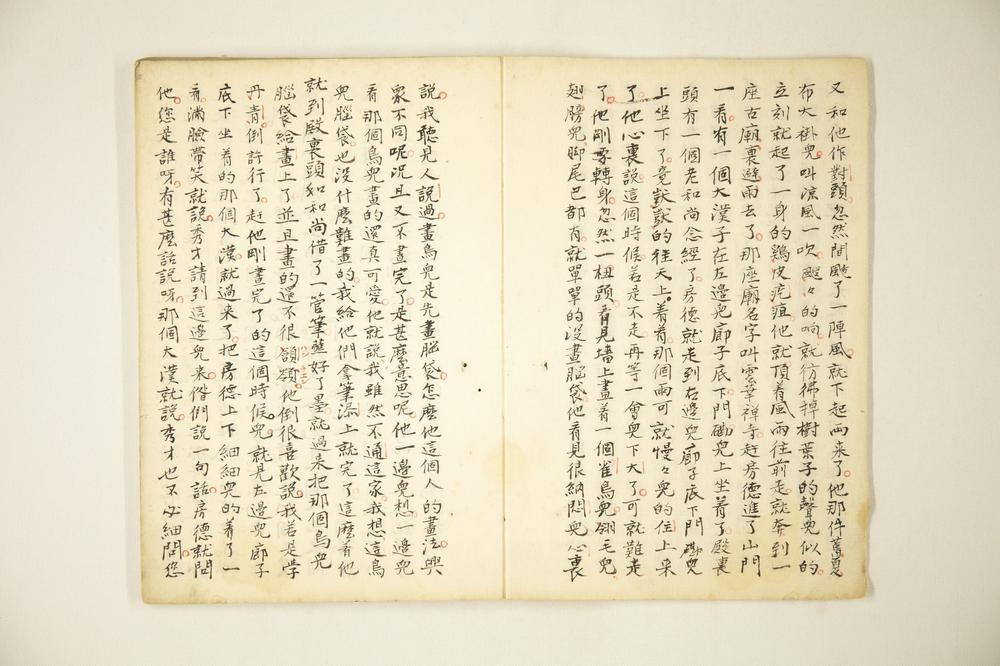 又和他作對頭忽然間颳了一陣風就下起雨來了他那件舊夏
布大褂兒叫涼風一吹颼々的响就彷彿掉樹葉子的聲兒似的
立刻就起了一身的鷄皮疙疸他就頂着風雨往前走就奔到一
座古廟裏避雨去了那座廟名字叫雲華禅寺赶房德進了山門
一看有一個大漢子在左邊兒廊子底下門磡兒上坐着了殿裏
頭有一個老和尚念經了房德就走到右邊兒廊子底下門磡兒
上坐下了竟獃獃的往天上看着那個雨可就慢々兒的住上来
了他心裏説這個時候若是不走再等一會兒下大了可就難走
了他剛要轉身忽然一柦頭看見墻上畫着一個雀鳥兒翎毛兒
翅膀兒脚尾巴都有就單單的没畫腦袋他看見很納悶兒心裏
説我聽見人說過畫鳥兒是先畫腦袋怎麽他這個人的畫法與
衆不同呢况且又不畫完了是甚麽意思呢他一邊兒想一邊兒
看那個鳥兒畫的還真可愛他就說我雖然不通這家我想這鳥
兒腦袋也没什麽難畫的我給他們拿筆添上就完了這麽着他
就到殿裏頭和和尚借了一管筆蘸好了墨就過来把那個鳥兒
腦袋給畫上了並且畫的還不很領領他倒很喜歡說我若是學
丹青倒許行了赶他剛畫完了的這個時候兒就見左邊兒廊子
底下坐着的那個大漢就過来了把房德上下細細兒的看了一
看滿臉帶笑就說秀才請到這邊兒来偺們說一句話房德就問
他您是誰呀有甚麽話說呀那個大漢就說秀才也不必細問您